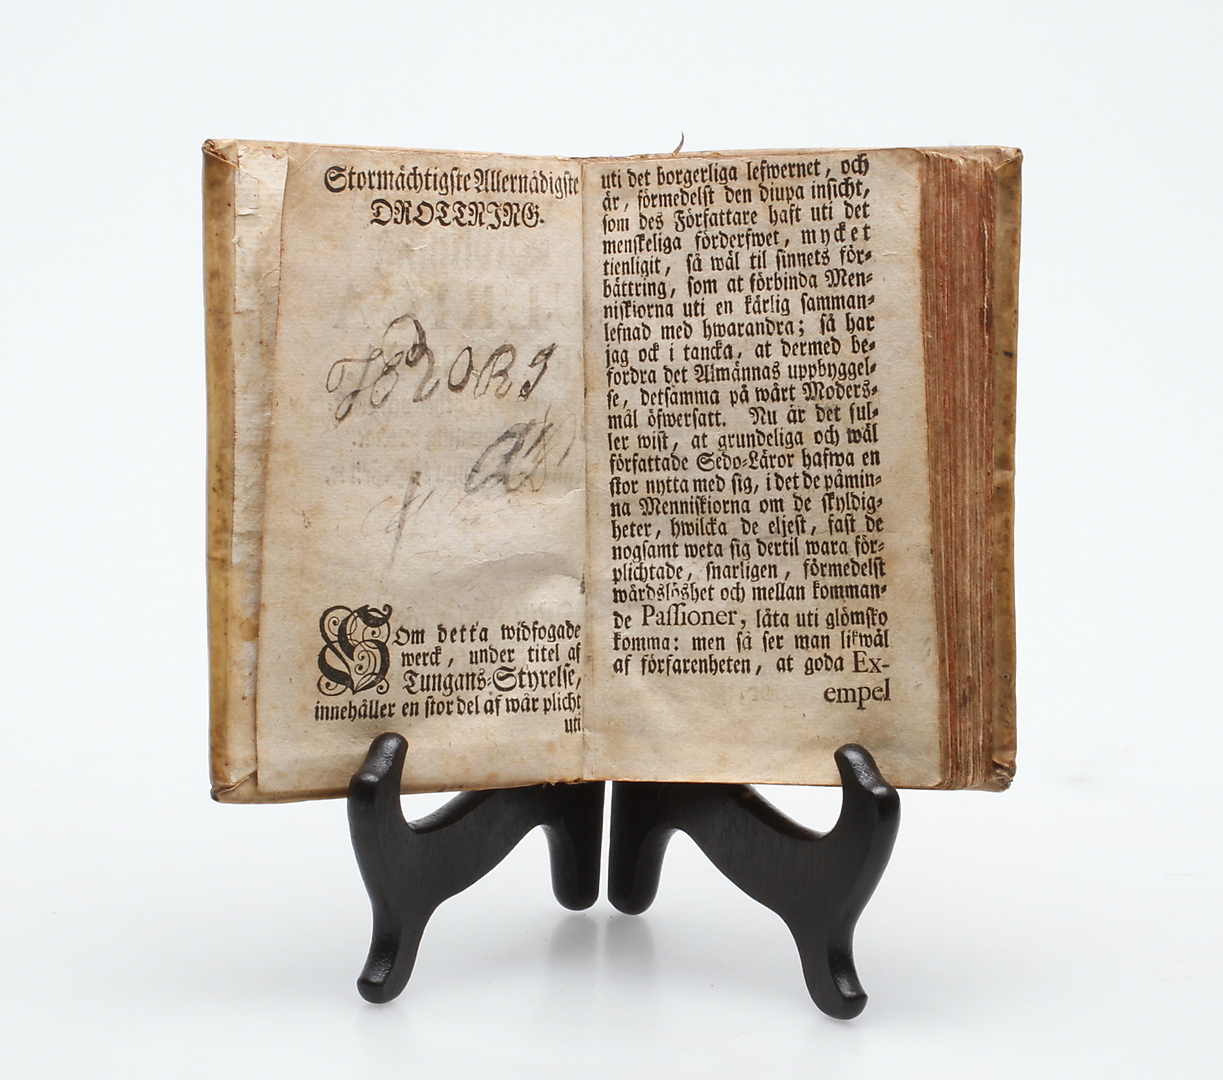 Stormächtigste Allernådigste
DROTTNING.
SOm detta widfogade
werck, under titel af
Tungans-Styrelse,
innehåller en stor del af wår plicht
uti
uti det borgerliga lefwernet, och
år, förmedelst den diupa insicht,
som des Författare haft uti det
menskeliga förderfwet, mycket
tienligit, så wål til sinnets för-
båttring, som at förbinda Men-
niskiorna uti en kårlig samman-
lefnad med hwarandra; så har
jag ock i tancka, at dermed be-
fordra det Allmånnas uppbyggel-
se, detsamma på wårt Moders-
mål öfwersatt. Nu år det ful-
ler wist, at grundeliga och wål
författade Sedo-Låror hafwa en
stor nytta med sig, i det de påmin-
na Menniskiorna om de skyldig-
heter, hwilcka de eljest, fast de
nogsamt weta sig dertil wara för-
plichtade, snarligen, förmedelst
wårdslöshet och mellan komman-
de Passioner, låta uti glömsko
komma: men så ser man likwål
af förfarenheten, at goda Ex-
empel